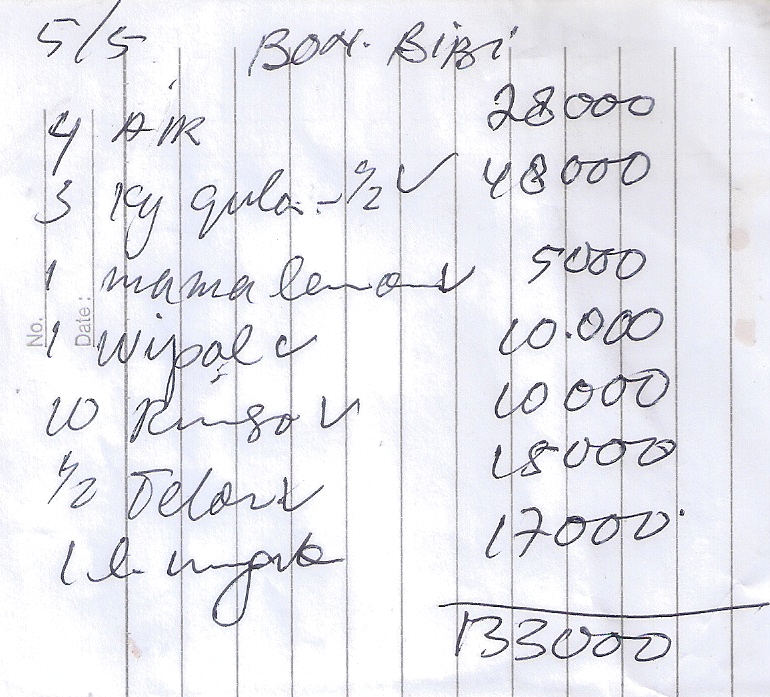 5/5 BON. BiBi
4 AIR 28000
3 kg gula - 1/2 ✓ 48000
1 mama lemon ✓ 5000
1 wipol ✓ 10.000
10 Rinso ✓ 10000
1/2 Telor ✓ 15000
1 l. minyak 17000
133000
No.
Date :